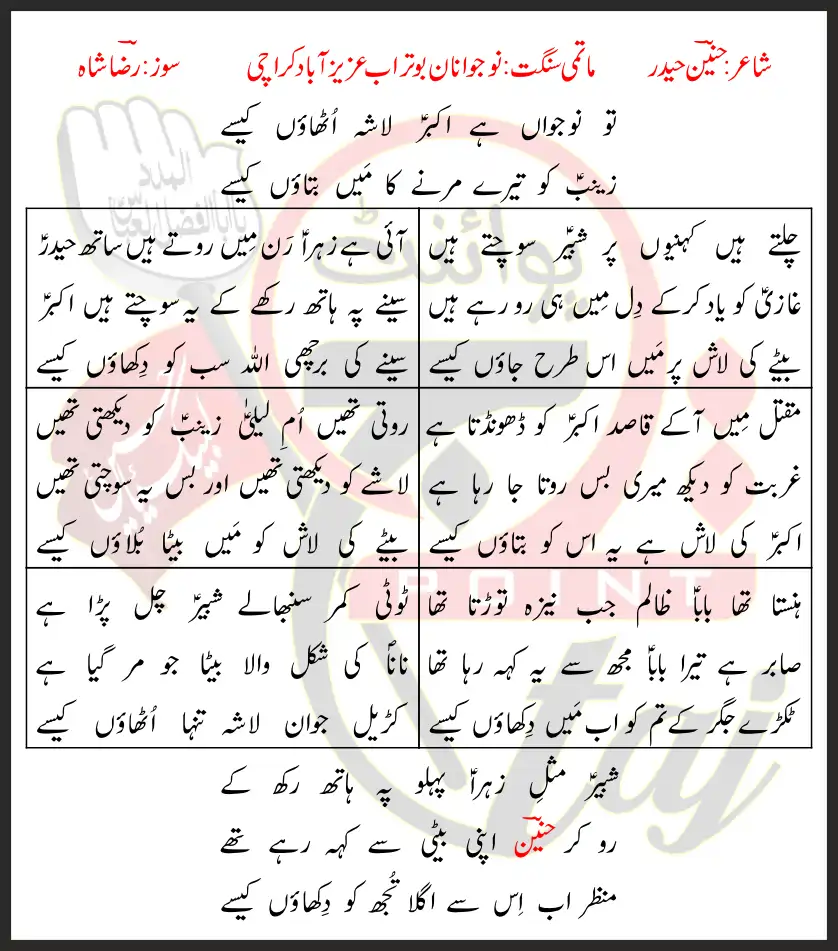 شاعر: حسنین حیدر ماتمی سنگت: نوجوانان بوتراب عزیز آباد کراچی سوز: رضا شاہ
تو نوجواں ہے اکبرؑ لاشہ اُٹھاؤں کیسے
زینبؑ کو تیرے مرنے کا مَیں بتاؤں کیسے
چلتے ہیں کہنیوں پر شبیرؑ سوچتے ہیں
غازیؑ کو یاد کرکے دِل مِیں ہی رو رہے ہیں
بیٹے کی لاش پر مَیں اس طرح جاؤں کیسے
آئی ہے زہراؑ رَن مِیں روتے ہیں ساتھ حیدرؑ
سینے پہ ہاتھ رکھے کے یہ سوچتے ہیں اکبرؑ
سینے کی برچھی اللہ سب کو دِکھاؤں کیسے
مقتل مِیں آکے قاصد اکبرؑ کو ڈھونڈتا ہے
غربت کو دیکھ میری بس روتا جا رہا ہے
اکبرؑ کی لاش ہے یہ اس کو بتاؤں کیسے
روتی تھیں اُمِ لیلیٰؑ زینبؑ کو دیکھتی تھیں
لاشے کو دیکھتی تھیں اور بس یہ سوچتی تھیں
بیٹے کی لاش کو مَیں بیٹا بُلاؤں کیسے
ہنستا تھا باباؑ ظالم جب نیزہ توڑتا تھا
صابر ہے تیرا باباؑ مجھ سے یہ کہہ رہا تھا
ٹکڑے جگر کے تم کو اب مَیں دِکھاؤں کیسے
ٹوٹی کمر سنبھالے شبیرؑ چل پڑا ہے
ناناؐ کی شکل والا بیٹا جو مر گیا ہے
کڑیل جوان لاشہ تنہا اُٹھاؤں کیسے
شبیرؑ مثلِ زہراؑ پہلو پہ ہاتھ رکھ کے
رو کر حسنین اپنی بیٹی سے کہہ رہے تھے
منظر اب اِس سے اگلا تُجھ کو دِکھاؤں کیسے
پوائنٹ
POINT
taj
المدد
یا ابالفضل العباس
لبیک یا حسین